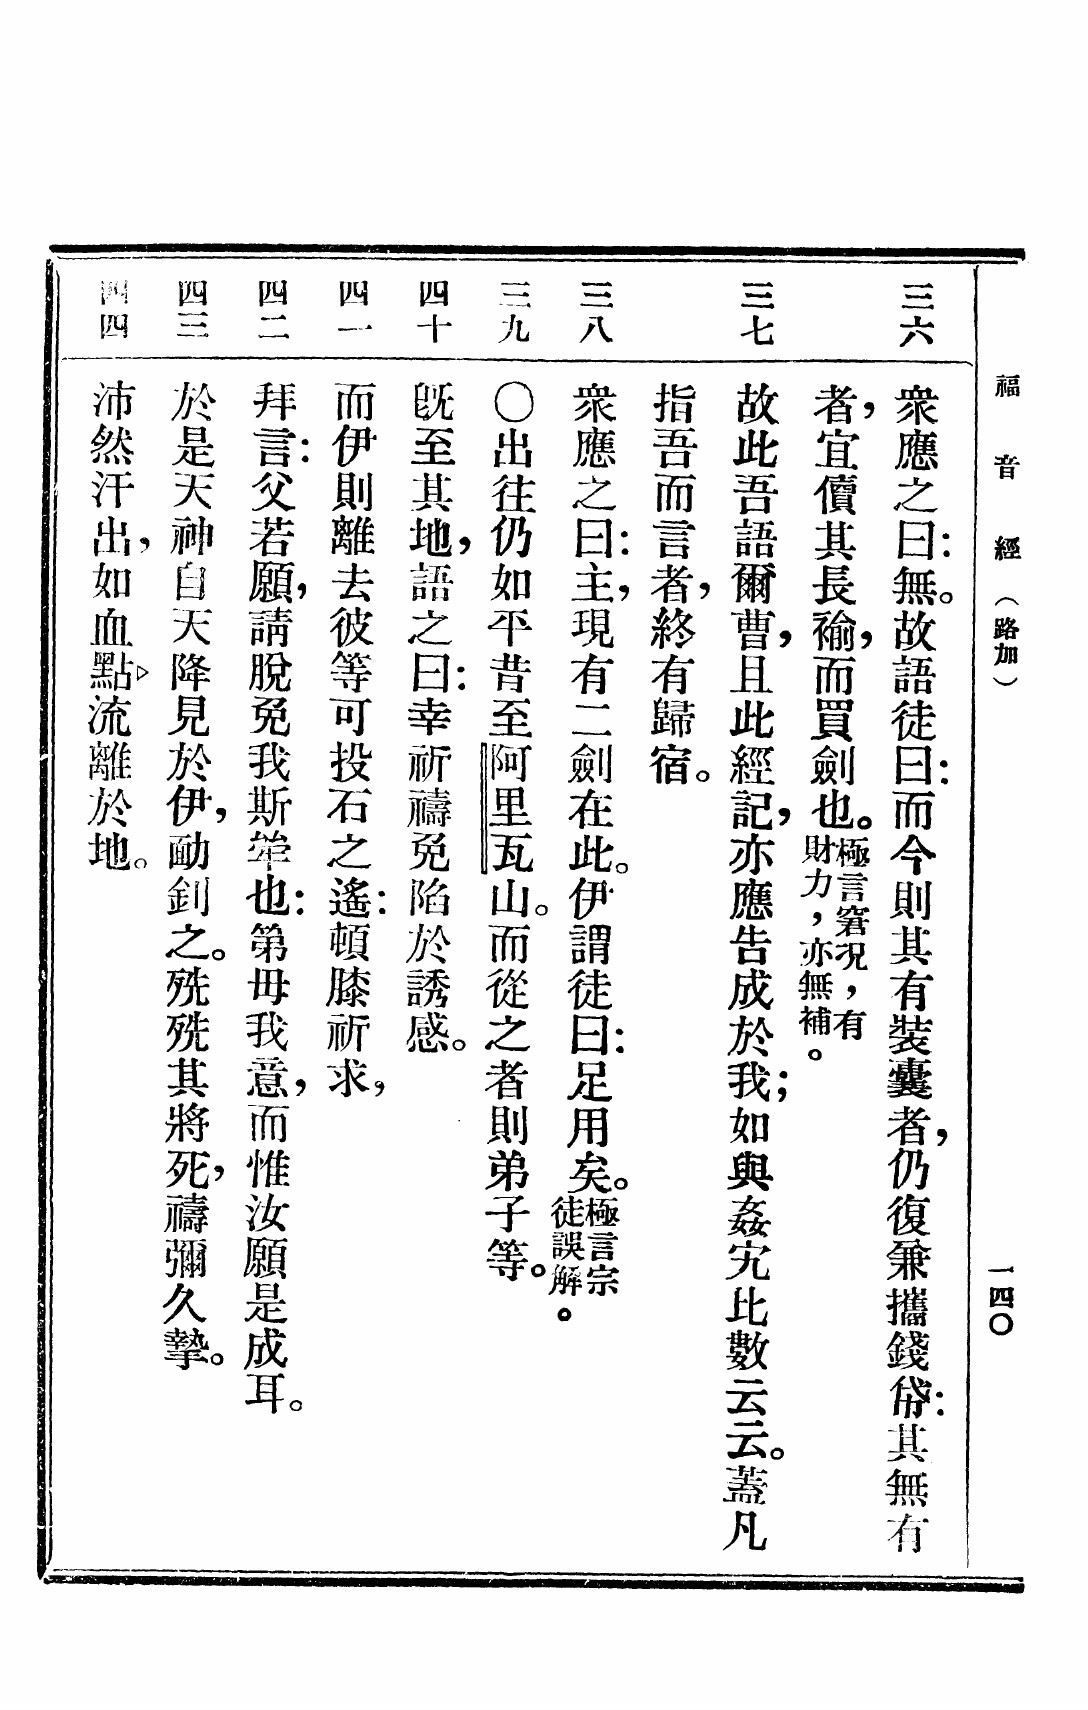 福音經（路加）
一四〇
三六
衆應之曰：無。故語徒曰：而今則其有裝囊者，仍復兼攜錢帒：其無有
者，宜儥其長褕，而買劍也。極言窘况，有財力，亦無補。
三七
故此吾語爾曹，且此經記，亦應告成於我；如與姦宄比數云云。蓋凡
指吾而言者，終有歸宿。
三八
衆應之曰：主，現有二劍在此。伊謂徒曰：足用矣。極言宗徒誤解。
三九
〇出往仍如平昔至阿里瓦山。而從之者則弟子等。
四十
既至其地，語之曰：幸祈禱免陷於誘惑。
四一
而伊則離去彼等可投石之遙：頓膝祈求，
四二
拜言：父若願，請脫免我斯犖也：第毋我意，而惟汝願是成耳。
四三
於是天神自天降見於伊，勔釗之。殑殑其將死，禱彌久摯。
四四
沛然汗出，如血點流離於地。